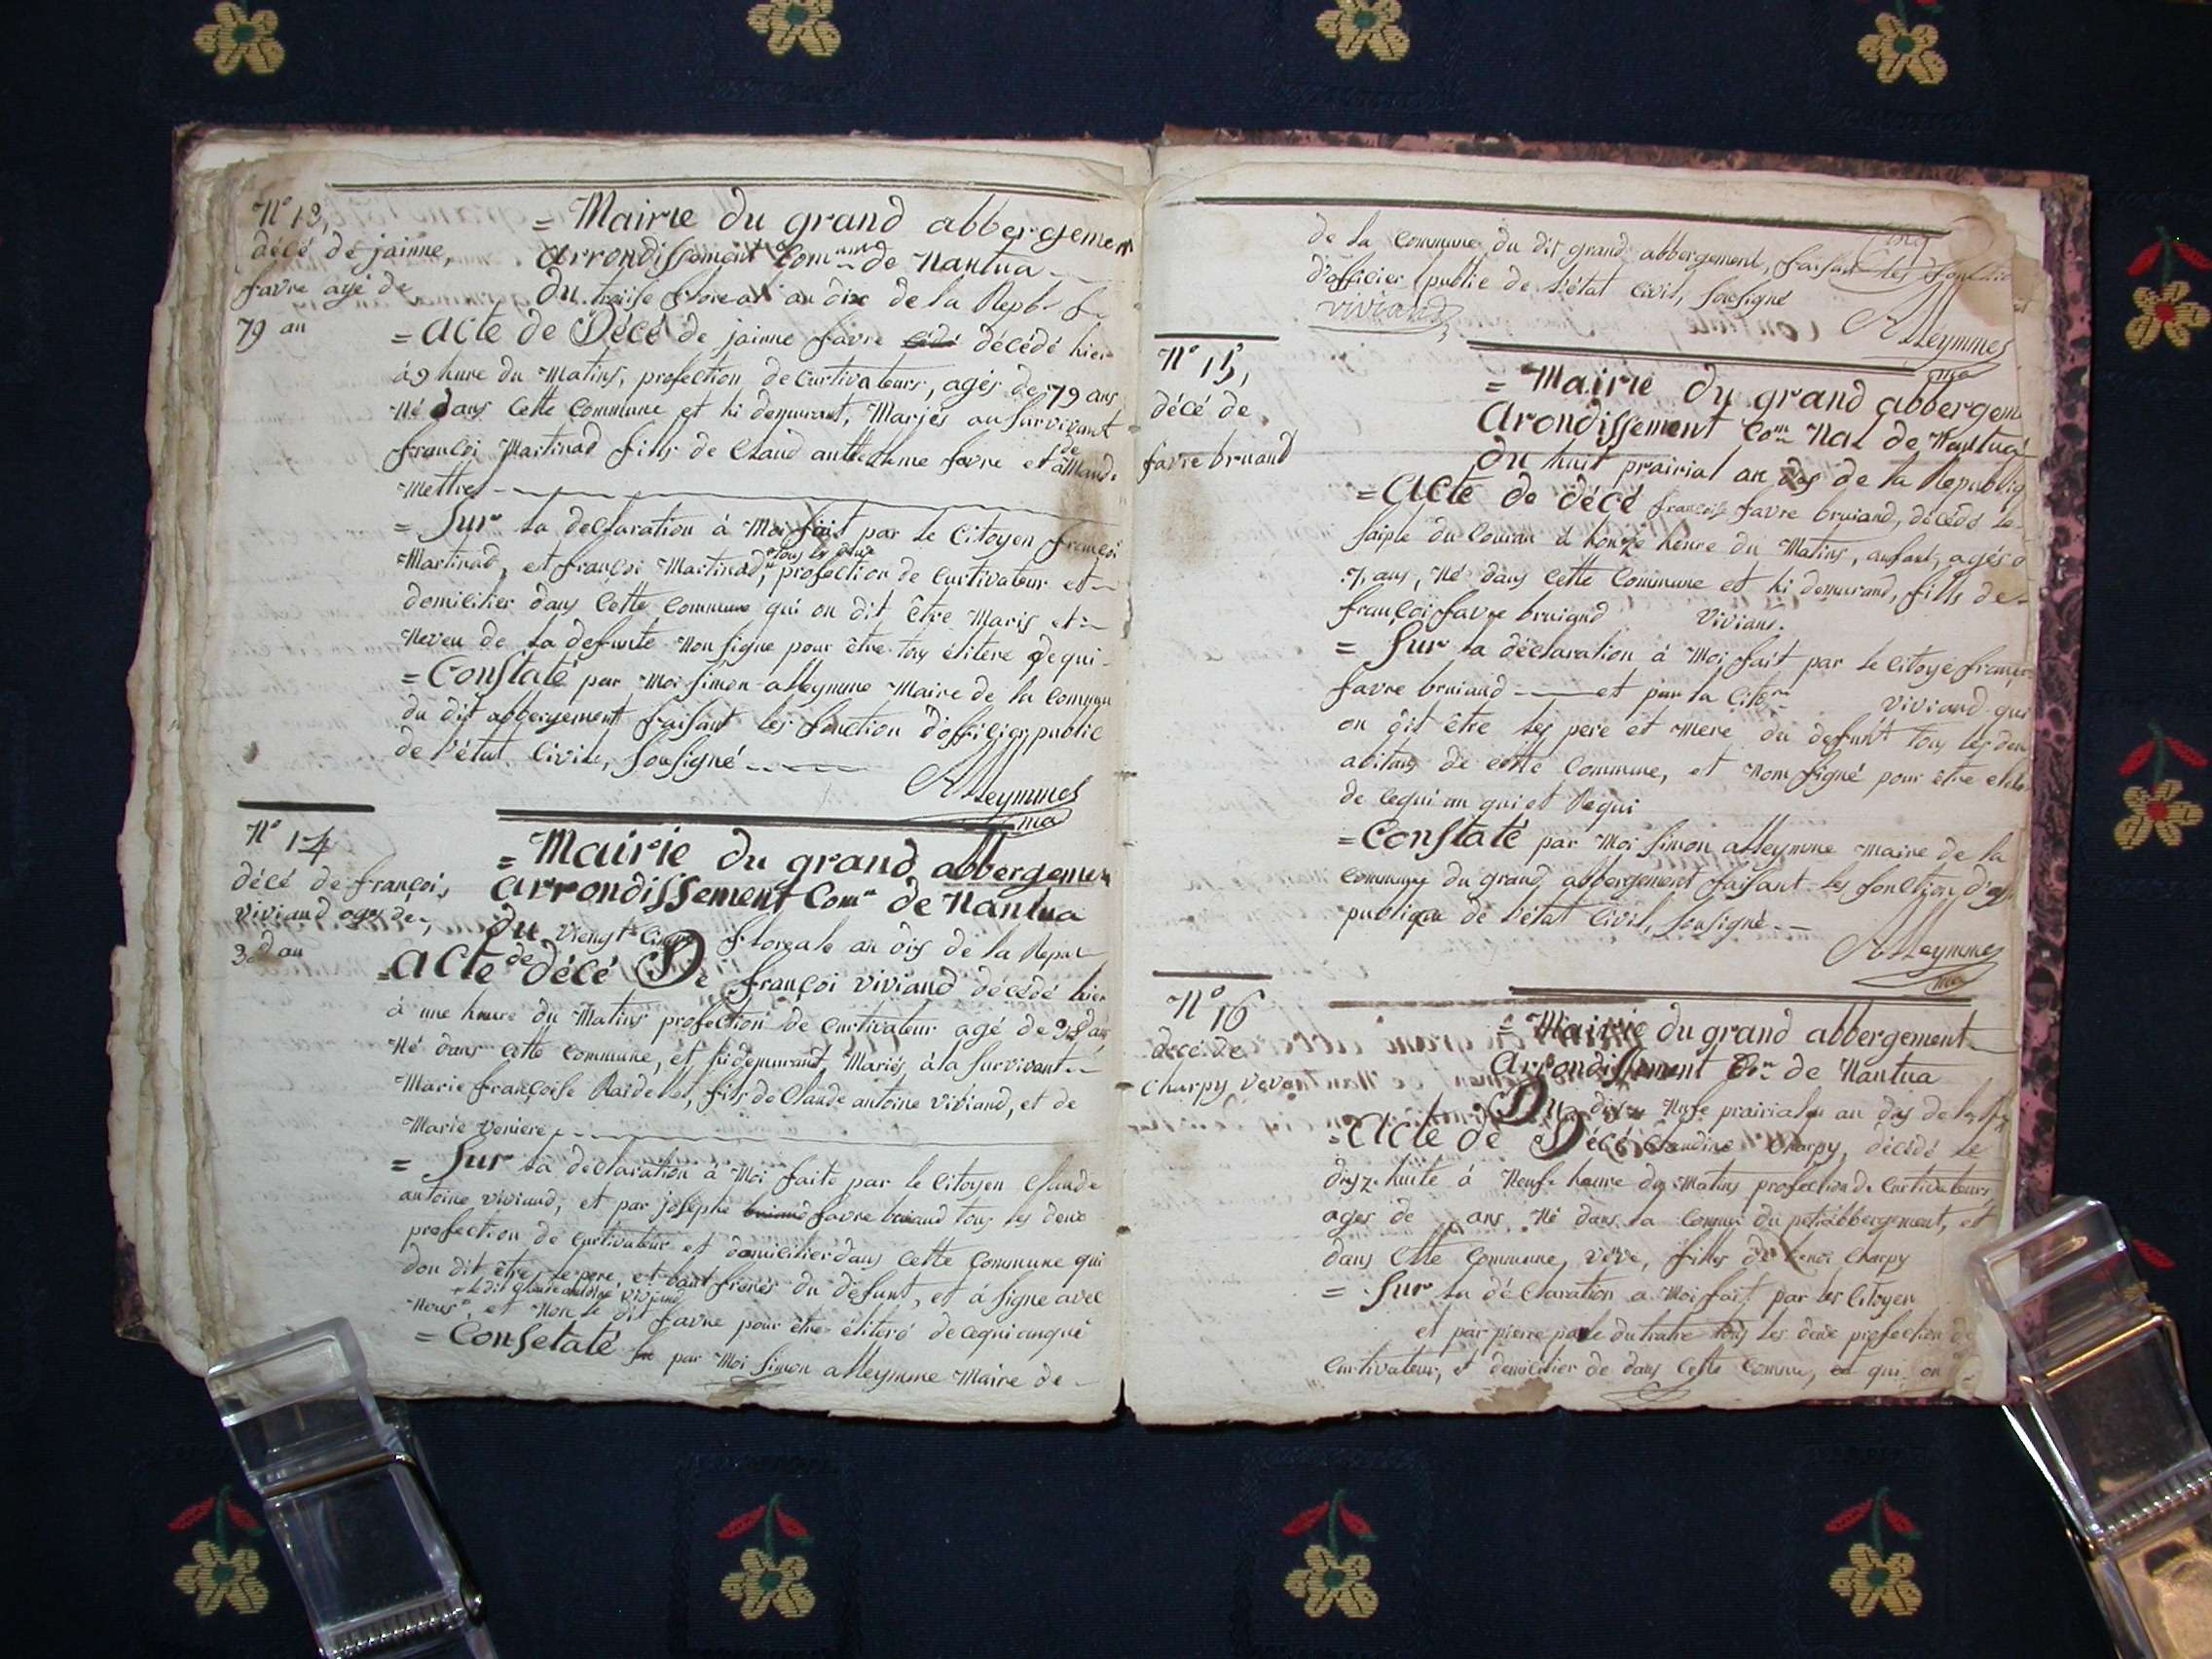 N° 13,
décé de jainne,
favre agé de
79 an
= Mairie du grand abbergemen
arrondissement Com^nal de Nantua
Du treise floreal an dix de la Repb. f.
= Acte de Décé de jainne favre décédé hier
à 9 hure du Matins, profection de Curtivateurs, agés de 79 ans
Né dans Cette Commune et hi demurant, Mariés au Survivant
françoi Martinad fills de Claud anthelme favre et de
Mettres
= Sur la declaration à Moi fait par le Citoyen françoi
Martinad, et françoi Martinad, tous les deux profection de Curtivateur et
domicilier dans Cette Commune qui on dit être Maris et
Neveu de la defunte Non signe pour être tous élitere de qui
= Constaté par Moi Simon alleymme Maire de la Commun
du dit abbergement faisant les fonction d'officier public
de l'état Civile, Sousigné
Alleymmes
ma
N° 14
décé de françois,
viviand ages de,
an
= Mairie du grand abbergemen
arrondissement Com^n de Nantua
Du Viengt Cinque floreale an dis de la Repu
= Acte de décé De françoi viviand décédé hier
à une heure du Matins profection de Curtivateur agé de ans
Né dans Cette Commune, et hi demurant, Mariés à la Survivant
Marie françoise Raidelet, fils de Claude antoine viviand, et de
Marie Veniere
= Sur la declaration à Moi faite par le Citoyen Claude
antoine viviand, et par joseph favre bruiand tous les deux
profection de Curtivateur et domicilier dans Cette Commune qui
don dit être le pere, et baut freres du defunt, et à signe avec
le dit Claude antoine viviand
Nous, et Non le dit favre pour être élitéré de cequi anqui
= Consetaté par Moi Simon alleymme Maire de
de la Commune du dit grand abbergement, faisant les fonction
d'officier public de l'état Civil, Sousigné
viviand
Alleymmes
ma
N° 15,
décé de
favre bruand
= Mairie du grand abbergem
Arondissement Com^n Nal de Nantua
Du huit prairial an dis de la Republiq
= Acte de décé françois favre bruiand, décédé le
saiple du Couran à honze heure du Matins, anfant, agés
7 ans, Né dans Cette Commune et hi demurand, fills de
françoi favre bruigand Vivians.
= Sur la déclaration à Moi fait par le Citoye françoi
favre bruiand et par la Cito^n viviand qui
on dit être les pere et mere du defunt tous les deu
abitans de Cette Commune, et Nom Signé pour être
de cequi an qui et Requi
= Constaté par Moi Simon alleymme Maire de la
Commune du grand abbergement faisant les fonction d'
publique de l'état Civil, Sousigné
Alleymmes
ma
N° 16
decé de
Charpy veve
= Mairie du grand abbergement
Arrondissement Com^n de Nantua
Du dis Nufe prairial an dis de la
= Acte de Décé Claudine Charpy, décédé le
disz-huite à Neufe heure du Matins profection de Curtivateurs,
ages de ans Né dans la Commun du petit abbergement, et
dans Cette Commune, veve, filles de benoi Charpy
= Sur la déClaration a Moi fait par les Citoyen
et par pierre dutraire tous les deux profection de
Curtivateur, et demicilier de dans Cette Commun, qui on